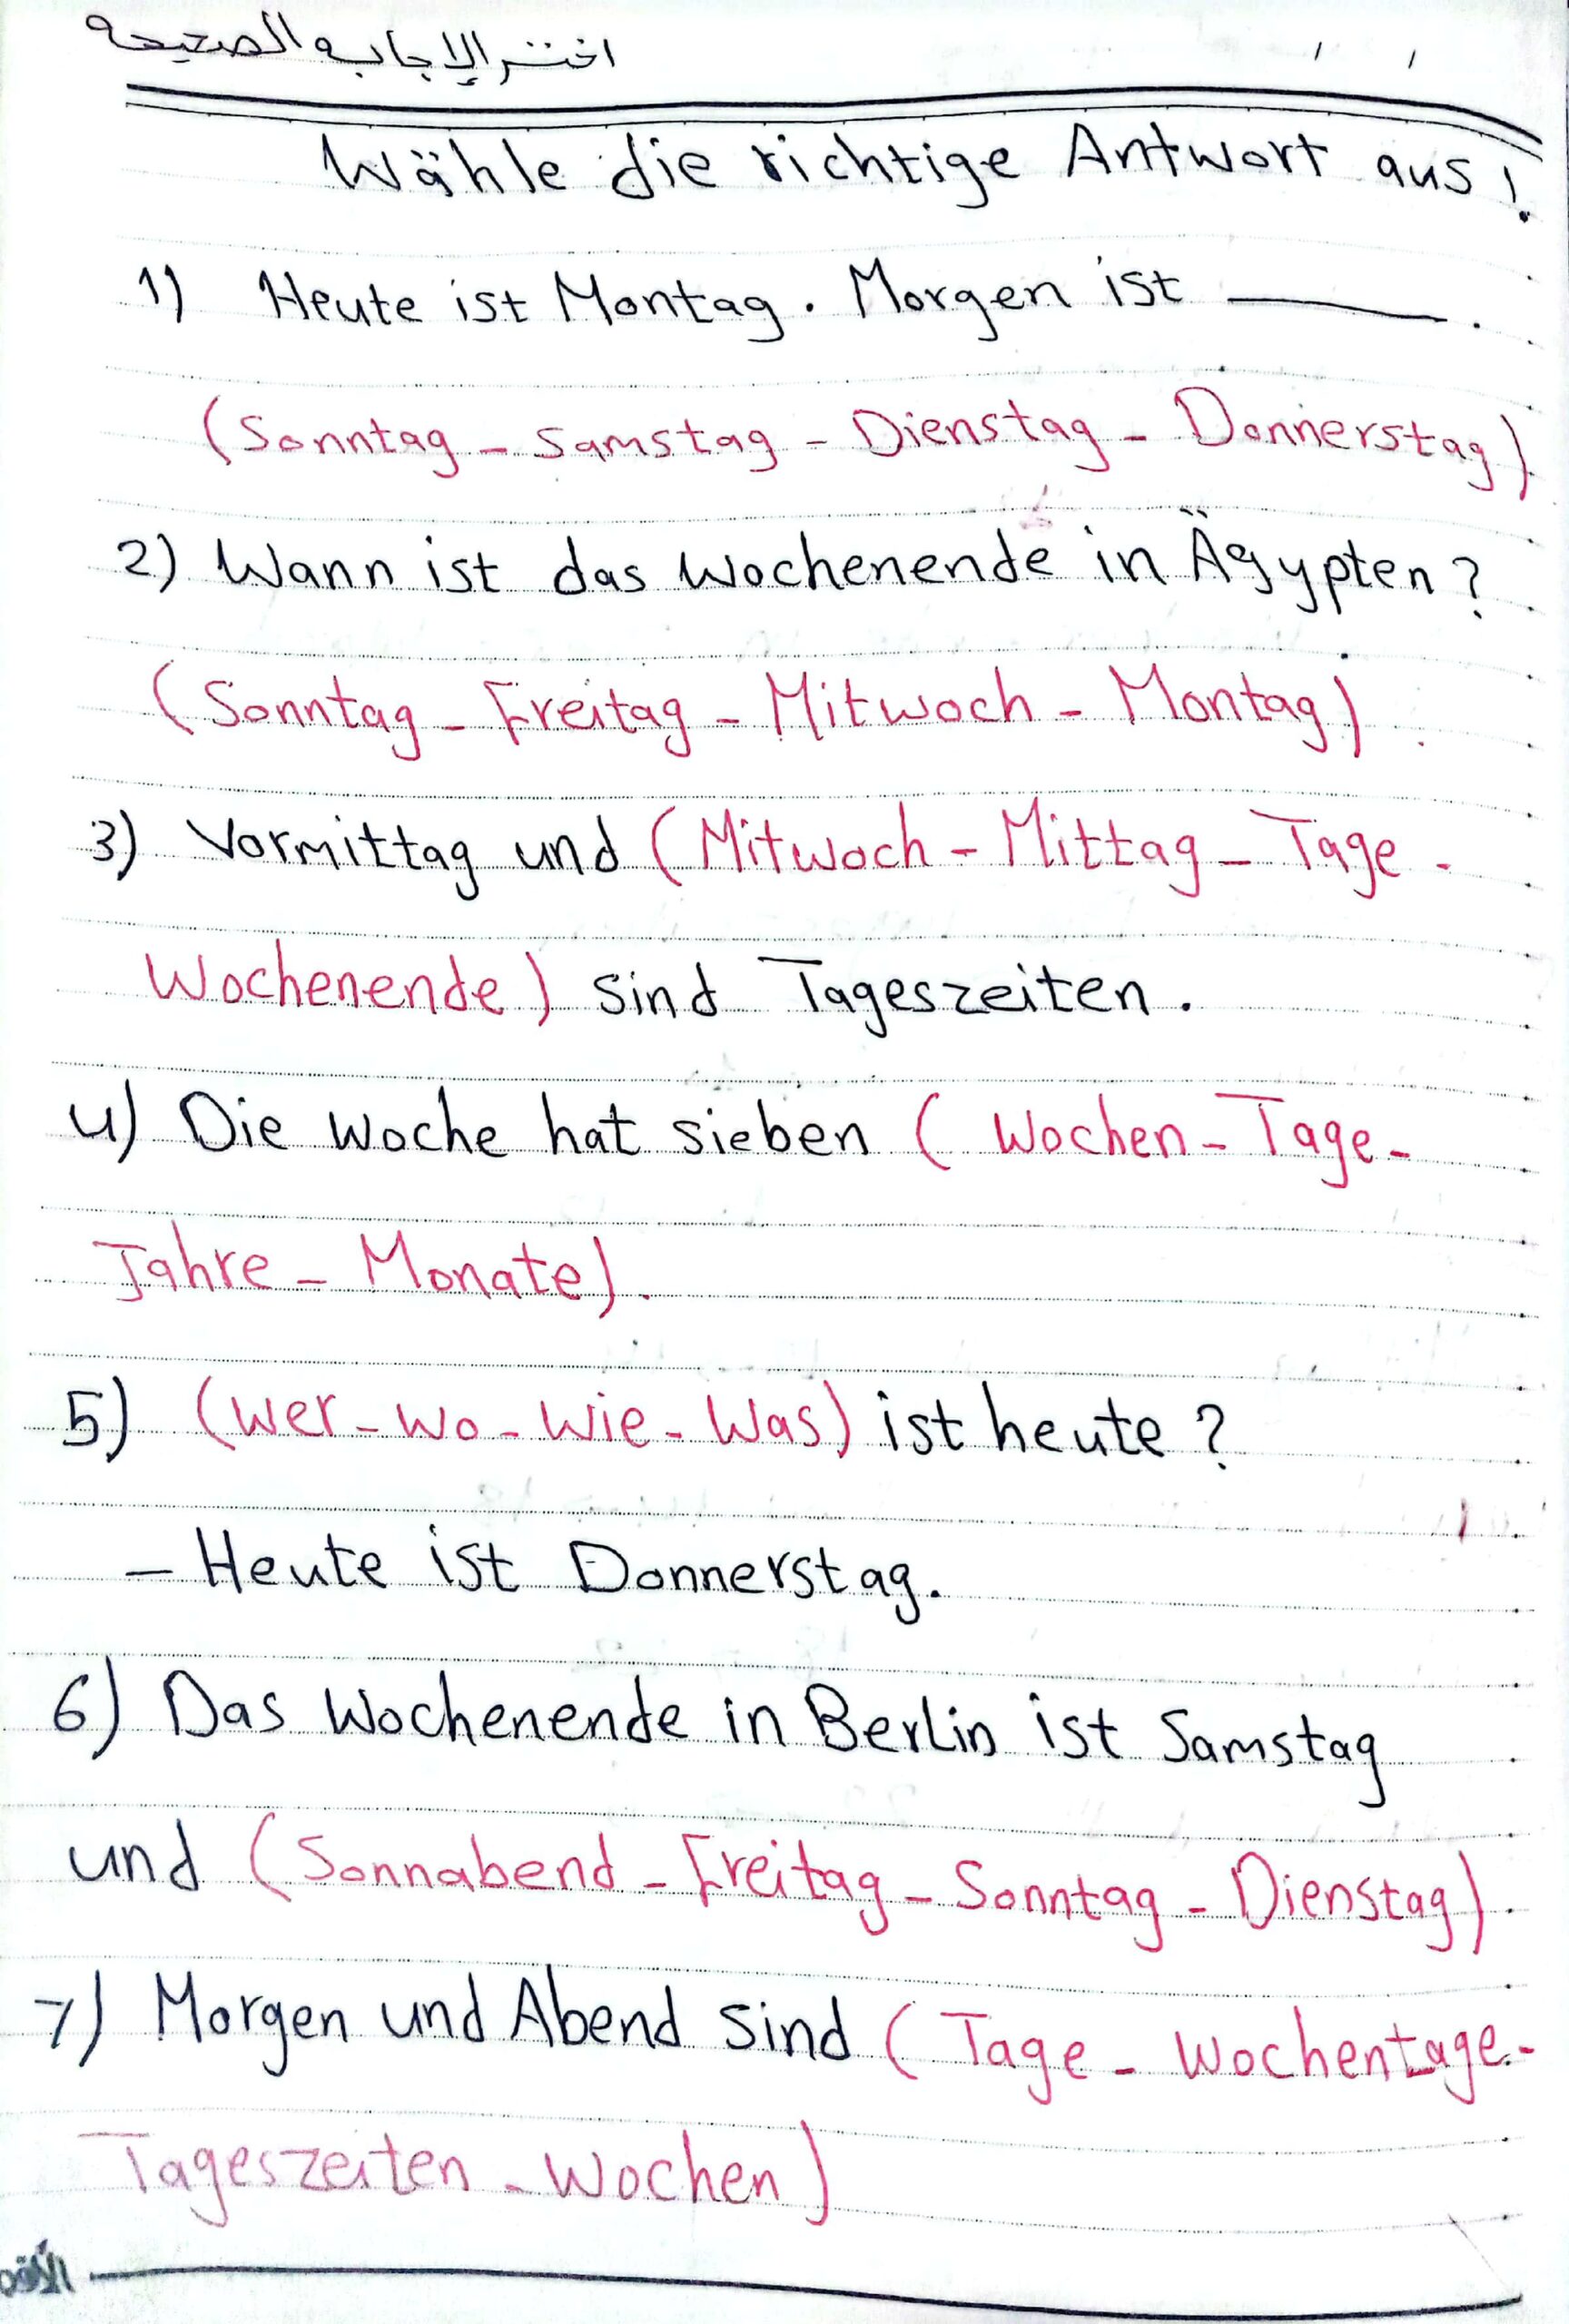 اختر الإجابه الصحيحه
/ /
Wähle die richtige Antwort aus!
1) Heute ist Montag. Morgen ist ———.
(Sonntag - Samstag - Dienstag - Donnerstag)
2) Wann ist das Wochenende in Ägypten?
(Sonntag - Freitag - Mitwoch - Montag)
3) Vormittag und (Mitwoch - Mittag - Tage -
Wochenende) sind Tageszeiten.
4) Die Woche hat sieben (Wochen - Tage -
Jahre - Monate).
5) (Wer - Wo - Wie - Was) ist heute?
- Heute ist Donnerstag.
6) Das Wochenende in Berlin ist Samstag
und (Sonnabend - Freitag - Sonntag - Dienstag).
7) Morgen und Abend sind (Tage - Wochentage -
Tageszeiten - Wochen)